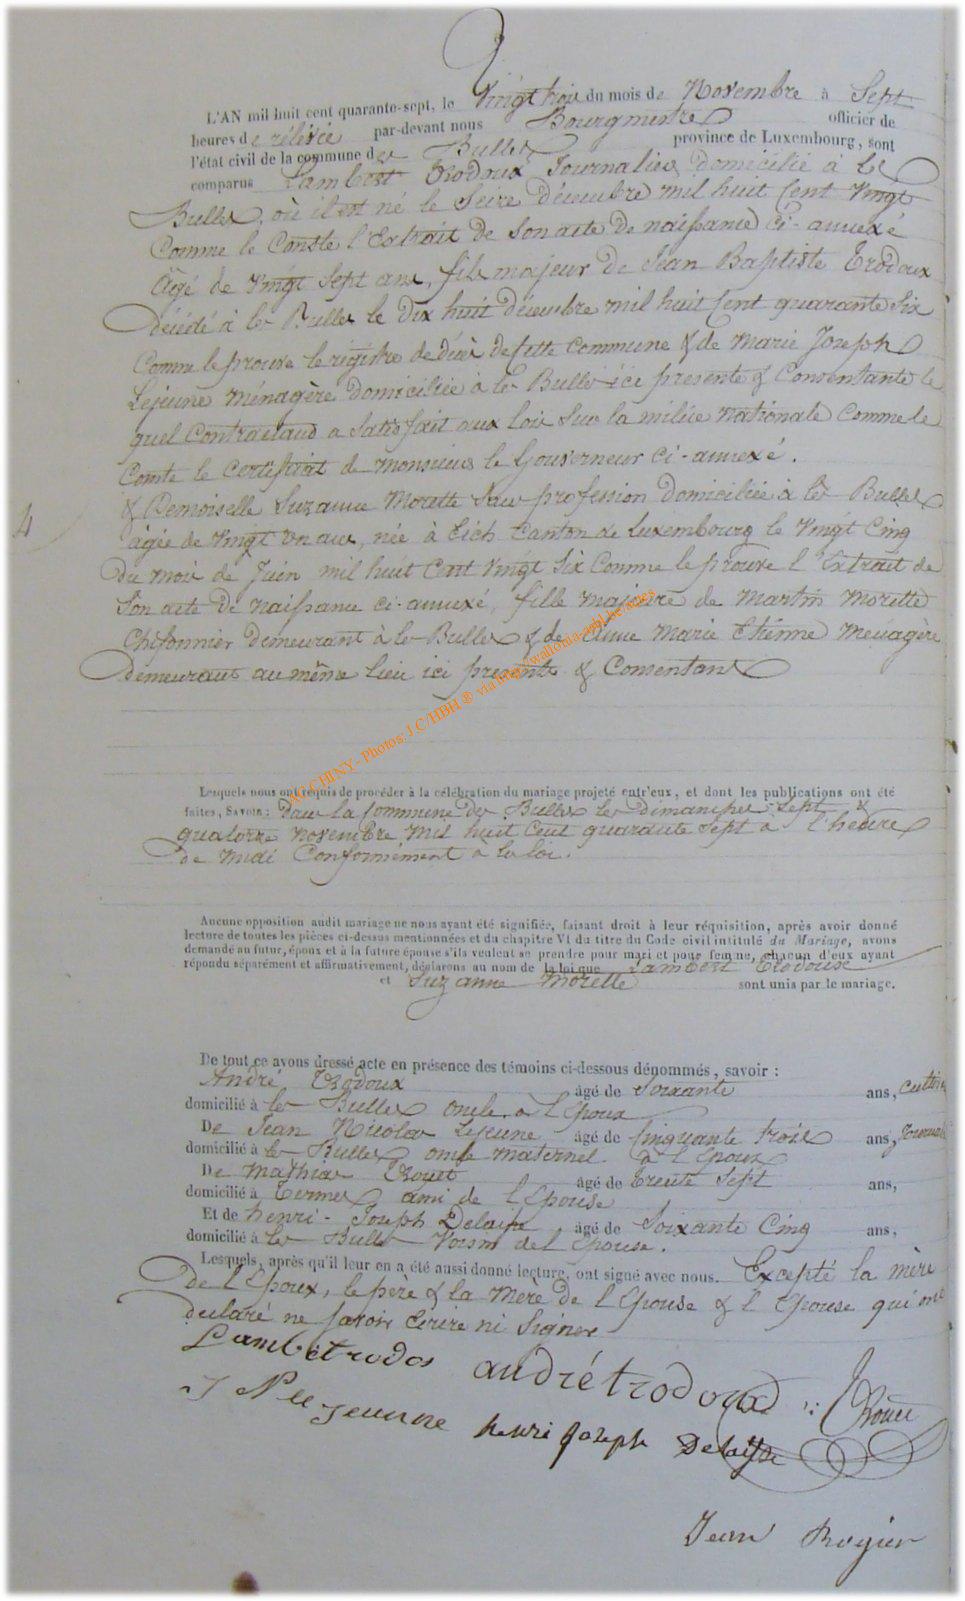 L'AN mil huit cent quarante-sept, le Vingt trois du mois de Novembre à Sept
heures de rélévée par-devant nous Bourgmestre officier de
l'état civil de la commune des Bulles province de Luxembourg, sont
comparus Lambert Trodoux Journalier domicilié à les
Bulles, où il est né le Seize décembre mil huit Cent Vingt
Comme le Conste l'Extrait de Son acte de naissance ci-annexé
Âgé de Vingt Sept ans, fils majeur de Jean Baptiste Trodoux
décédé à les Bulles le dix huit décembre mil huit Cent quarante Six
Comme le prouve le régistre de décès de Cette Commune & de Marie Joseph
Lejeune ménagère domiciliée à les Bulles ici présente & Consentante le
quel Contractand a Satisfait aux lois Sur la milice Nationale Comme le
Conste le Certificat de Monsieur le Gouverneur ci-annexé.
& Demoiselle Suzanne Morette Sans profession domiciliée à les Bulles
âgée de Vingt un ans, née à Eich Canton de Luxembourg le Vingt Cinq
Du mois de Juin mil huit Cent Vingt Six Comme le prouve l'Extrait de
Son acte de naissance ci-annexé, fille majeure de Martin Morette
Chifonnier demeurant à les Bulles & de Anne Marie Etienne Ménagère
demeurant au même lieu ici présents & Consentants
4
AC CHINY- Photos: J.C/HBH ® via http://wallonia-asbl.be/ates
Lesquels nous ont requis de procéder à la célébration du mariage projeté entr'eux, et dont les publications ont été
faites, SAVOIR: dans la Commune des Bulles les dimanches Sept &
quatorze novembre mil huit Cent quarante Sept à l'heure
de midi Conformément à la loi.
Aucune opposition audit mariage ne nous ayant été signifiée, faisant droit à leur réquisition, après avoir donné
lecture de toutes les pièces ci-dessus mentionnées et du chapitre VI du titre du Code civil intitulé du Mariage, avons
demandé au futur, époux et à la future épouse s'ils veulent se prendre pour mari et pour femme, chacun d'eux ayant
répondu séparément et affirmativement, déclarons au nom de la loi que Lambert Trodoux
et Suzanne Morette sont unis par le mariage.
De tout ce avons dressé acte en présence des témoins ci-dessous dénommés, savoir :
André Trodoux âgé de Soixante ans,
domicilié à les Bulles oncle à l'Epoux
De Jean Nicolas Lejeune âgé de Cinquante trois ans,
domicilié à les Bulles oncle maternel à l'Epoux
De Mathias Rouet âgé de Trente Sept ans,
domicilié à Termes ami de l'Epouse
Et de henri-Joseph Delaisse âgé de Soixante Cinq ans,
domicilié à les Bulles Voisin de l'Epouse.
Lesquels, après qu'il leur en a été aussi donné lecture, ont signé avec nous. Excepté la mère
De l'Epoux, le père & la Mère de l'Epouse & l'Epouse qui ont
declaré ne savoir écrire ni Signer
Lambetrodos andré trodoux Rouet
J N le jeunne henri joseph Delaisse
Jean Rogier